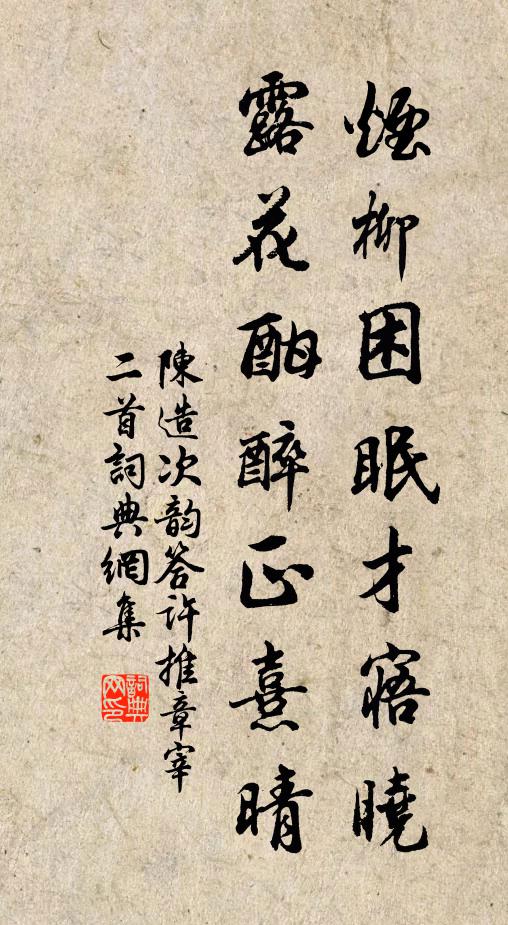 煙柳困眠才寤曉
露花酣醉正熹晴
陳造次韵答许推章宰
二首詞典網集
詞典
网印